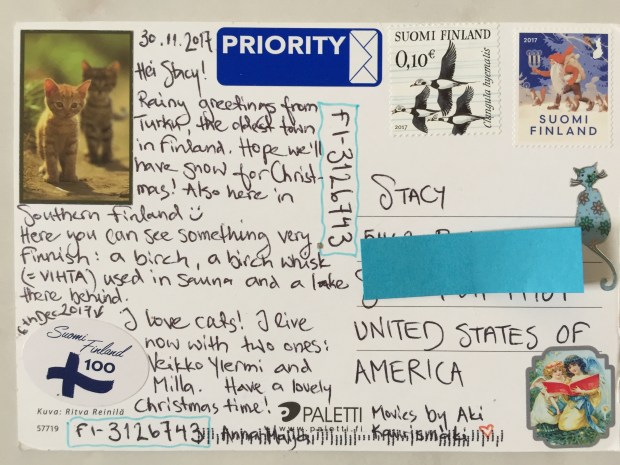 30.11.2017
Hei Stacy!
Rainy greetings from
Turku, the oldest town
in Finland. Hope we'll
have snow for Christ-
mas! Also here in
Southern Finland
Here you can see something very
Finnish: a birch, a birch whisk
(= VIHTA) used in sauna and a lake
there behind.
6th Dec 2017
I love cats! I live
now with two ones:
Veikko Ylermi and
Milla. Have a lovely
Christmas time!
Suomi
Finland
100
Kuva: Ritva Reinilä
57719
FI-3126743
PRIORITY
SUOMI FINLAND
0,10€
Clangula hyemalis
2017
2017
SUOMI
FINLAND
FI-3126743
STACY
UNITED STATES OF
AMERICA
PALETTI
www.paletti.fi
Movies by Aki
Kaurismäki